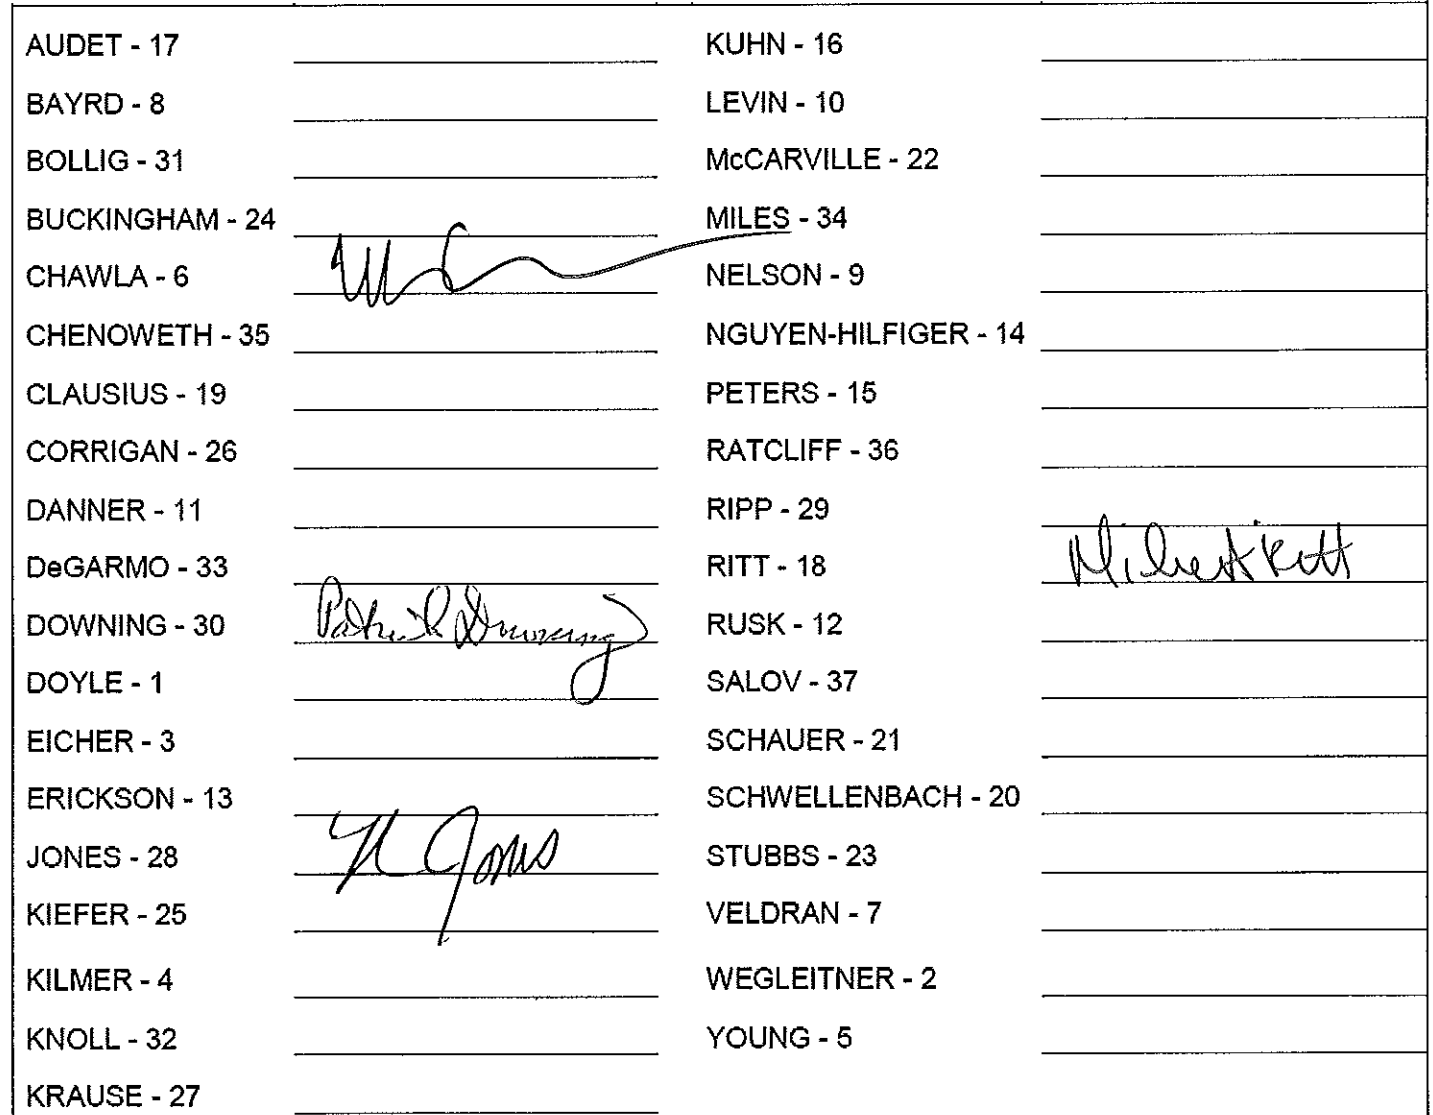 AUDET - 17
BAYRD - 8
BOLLIG - 31
BUCKINGHAM - 24
CHAWLA - 6
CHENOWETH - 35
CLAUSIUS - 19
CORRIGAN - 26
DANNER - 11
DeGARMO - 33
DOWNING - 30 Patrick Downing
DOYLE - 1
EICHER - 3
ERICKSON - 13
JONES - 28 Jones
KIEFER - 25
KILMER - 4
KNOLL - 32
KRAUSE - 27
KUHN - 16
LEVIN - 10
McCARVILLE - 22
MILES - 34
NELSON - 9
NGUYEN-HILFIGER - 14
PETERS - 15
RATCLIFF - 36
RIPP - 29
RITT - 18 Ritt
RUSK - 12
SALOV - 37
SCHAUER - 21
SCHWELLENBACH - 20
STUBBS - 23
VELDRAN - 7
WEGLEITNER - 2
YOUNG - 5